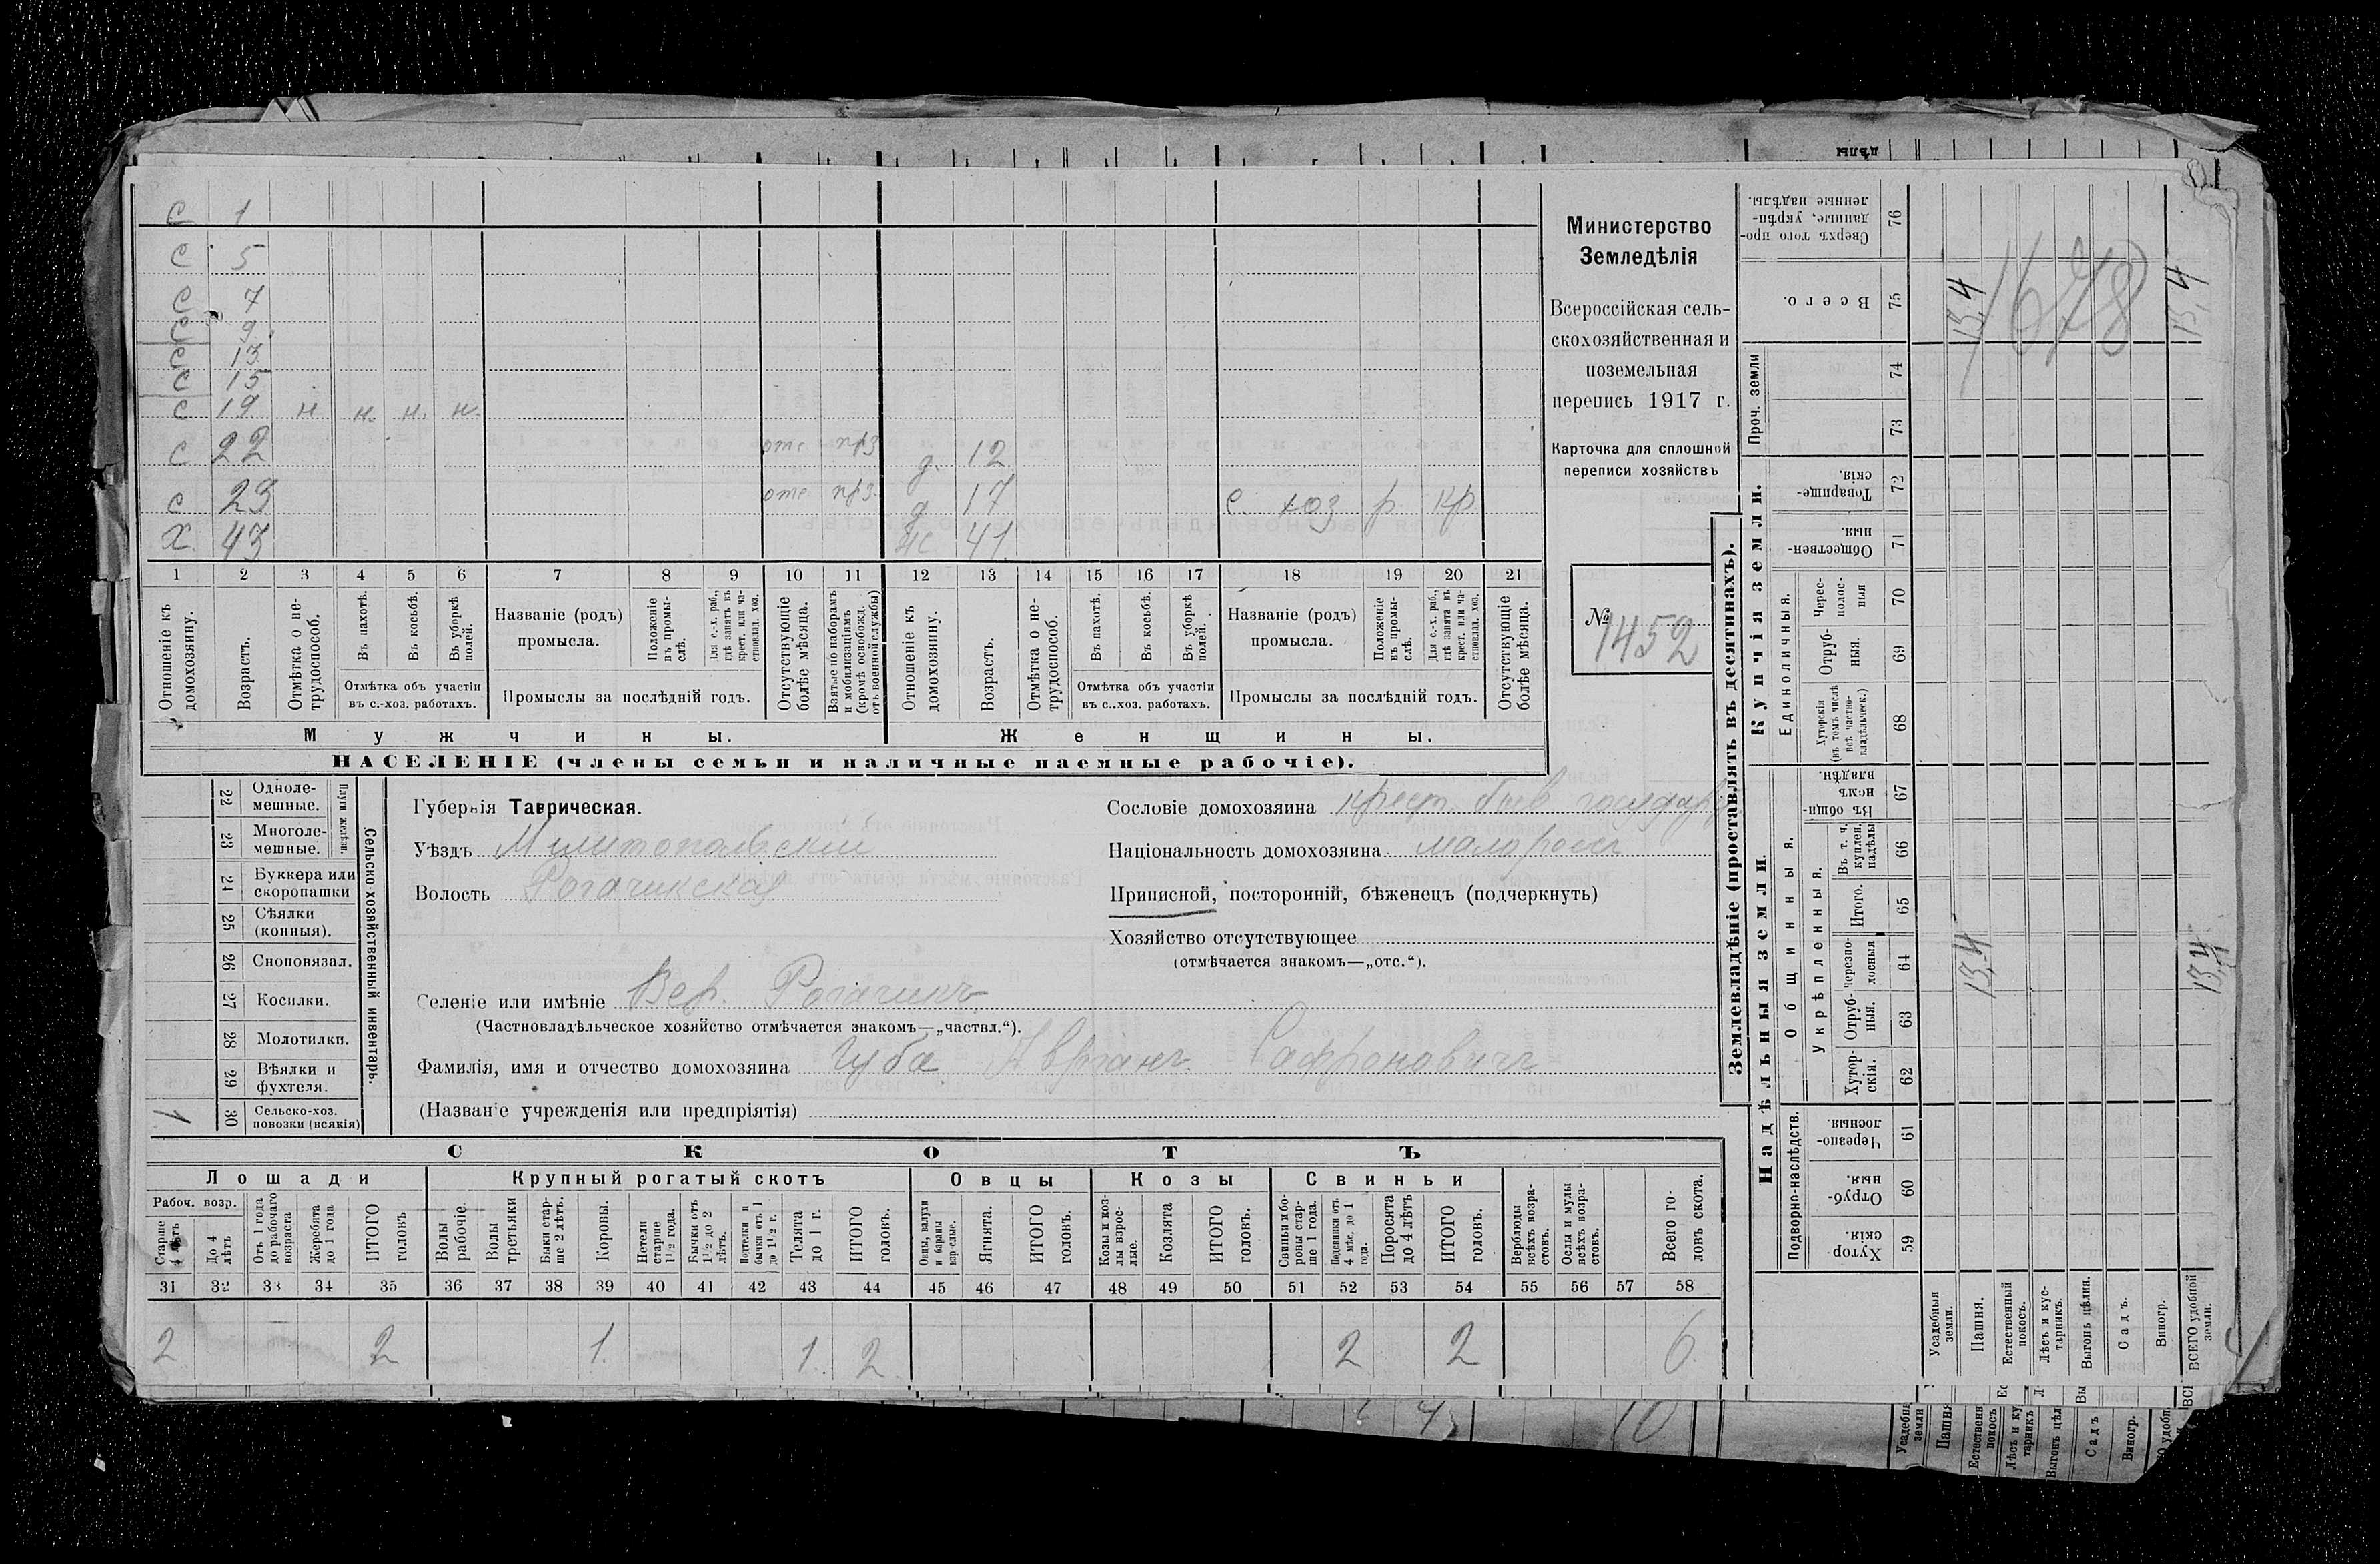 с 1
с 5
с 7
с 9
с 13
с 15
с 19 н н. н. н.
с 22 отс прз д. 12
с 23 отс прз. д 17 с хоз р. кр
Х 43 ж 41
1 2 3 4 5 6 7 8 9 10 11 12 13 14 15 16 17 18 19 20 21
Отношеніе къ домохозяину.
Возрастъ.
Отмѣтка о нетрудоспособ.
Въ пахотѣ.
Въ косьбѣ.
Въ уборкѣ полей.
Отмѣтка объ участіи въ с.-хоз. работахъ.
Названіе (родъ) промысла.
Положеніе въ промыслѣ.
Для с.-х. раб., гдѣ занятъ въ крест. или частновлад. хоз.
Промыслы за послѣдній годъ.
Отсутствующіе болѣе мѣсяца.
Взятые по наборамъ и мобилизаціямъ (кромѣ освобожд. отъ военной службы)
Отношеніе къ домохозяину.
Возрастъ.
Отмѣтка о нетрудоспособ.
Въ пахотѣ.
Въ косьбѣ.
Въ уборкѣ полей.
Отмѣтка объ участіи въ с..хоз. работахъ.
Названіе (родъ) промысла.
Положеніе въ промыслѣ.
Для с.-х. раб., гдѣ занята въ крест. или частновлад. хоз.
Промыслы за послѣдній годъ.
Отсутствующіе болѣе мѣсяца.
Мужчины.
Женщины.
НАСЕЛЕНІЕ (члены семьи и наличные наемные рабочіе).
Министерство
Земледѣлія
Всероссійская сель-
скохозяйственная и
поземельная
перепись 1917 г.
Карточка для сплошной
переписи хозяйствъ
№ 1452
22 Однолемешные.
23 Многолемешные.
Плуги желѣзн.
24 Буккера или скоропашки
25 Сѣялки (конныя).
26 Сноповязал.
27 Косилки.
28 Молотилки.
29 Вѣялки и фухтеля.
30 Сельско-хоз. повозки (всякія)
1
Сельско-хозяйственный инвентарь.
Губернія Таврическая.
Уѣздъ Мелитопольскій
Волость Рогачикская
Селеніе или имѣніе Вер. Рогачикъ
(Частновладѣльческое хозяйство отмѣчается знакомъ—„частвл.“).
Фамилія, имя и отчество домохозяина Чуба Сафроновичъ
(Названіе учрежденія или предпріятія)
Сословіе домохозяина крест. быв государ
Національность домохозяина малоросс
Приписной, посторонній, бѣженецъ (подчеркнуть)
Хозяйство отсутствующее
(отмѣчается знакомъ—„отс.“).
СКОТЪ
Лошади
Крупный рогатый скотъ
Овцы
Козы
Свиньи
Рабоч. возр.
Старше 4 лѣтъ
До 4 лѣтъ
Отъ 1 года до рабочаго возраста
Жеребята до 1 года
ИТОГО головъ
Волы рабочіе
Волы третьяки
Быки старше 2 лѣтъ.
Коровы.
Нетели старше 1½ года.
Бычки отъ 1½ до 2 лѣтъ.
Подтелки и бычки отъ 1 до 1½ г.
Телята до 1 г.
ИТОГО головъ.
Овцы, валухи и бараны взрослые.
Ягнята.
ИТОГО головъ.
Козы и козлы взрослые.
Козлята
ИТОГО головъ.
Свиньи и боровы старше 1 года.
Подсвинки отъ 4 мѣс. до 1 года.
Поросята до 4 лѣтъ
ИТОГО головъ.
Верблюды всѣхъ возрастовъ.
Ослы и мулы всѣхъ возрастовъ.
Всего головъ скота.
31 32 33 34 35 36 37 38 39 40 41 42 43 44 45 46 47 48 49 50 51 52 53 54 55 56 57 58
2 2 1. 1. 2 2 2 6
Землевладѣніе (проставлять въ десятинахъ).
Купчія земли.
Надѣльныя земли.
Проч. земли
Единоличныя.
Общинныя.
Укрѣпленныя.
Подворно-наслѣдств.
Сверхъ того проданные, укрѣпленные надѣлы. 76
Всего. 75
74
73
Товарищескія. 72
Общественныя. 71
Чересполосныя 70
Отрубныя. 69
Хуторскія (въ томъ числѣ всѣ частновладѣльческ.) 68
Въ общинномъ владѣн. 67
Въ т. ч. куплен. надѣлы 66
Итого. 65
Черезполосныя 64
Отрубныя. 63
Хуторскія. 62
Черезполосныя. 61
Отрубныя. 60
Хуторскія. 59
Усадебныя земли.
Пашня.
Естественный покосъ.
Лѣсъ и кустарникъ.
Выгонъ цѣлин.
Садъ.
Виногр.
ВСЕГО удобной земли.
13,4
1678
13,4
13,4
13,4
10